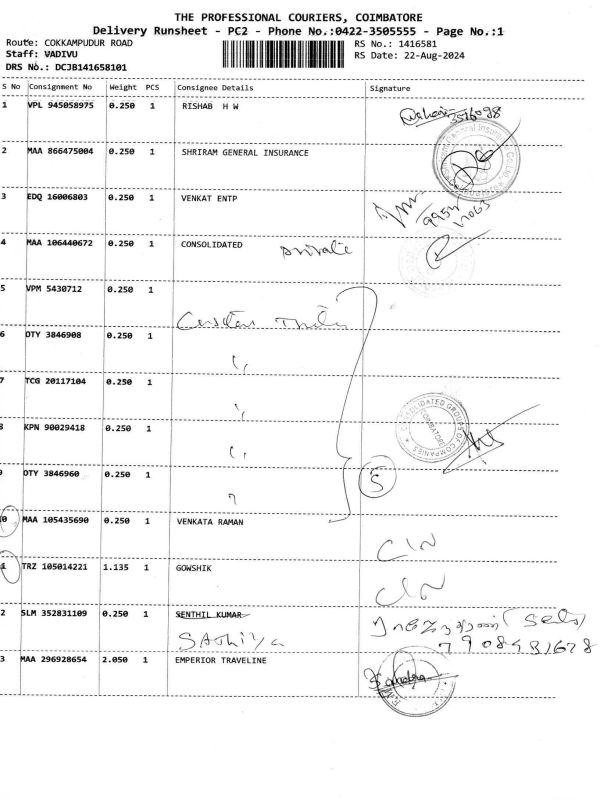 THE PROFESSIONAL COURIERS, COIMBATORE
Delivery Runsheet - PC2 - Phone No.:0422-3505555 - Page No.:1
Route: COKKAMPUDUR ROAD
RS No.: 1416581
Staff: VADIVU
RS Date: 22-Aug-2024
DRS No.: DCJB141658101
S No Consignment No Weight PCS Consignee Details Signature
1 VPL 945058975 0.250 1 RISHAB H W
2 MAA 866475004 0.250 1 SHRIRAM GENERAL INSURANCE
3 EDQ 16006803 0.250 1 VENKAT ENTP
4 MAA 106440672 0.250 1 CONSOLIDATED private
5 VPM 5430712 0.250 1
6 OTY 3846908 0.250 1
7 TCG 20117104 0.250 1
CONSOLIDATED GROUPS OF COMPANIES
COIMBATORE
8 KPN 90029418 0.250 1
9 OTY 3846960 0.250 1
5
0 MAA 105435690 0.250 1 VENKATA RAMAN
1 TRZ 105014221 1.135 1 GOWSHIK
2 SLM 352831109 0.250 1 SENTHIL KUMAR
SAthiya
3 MAA 296928654 2.050 1 EMPERIOR TRAVELINE